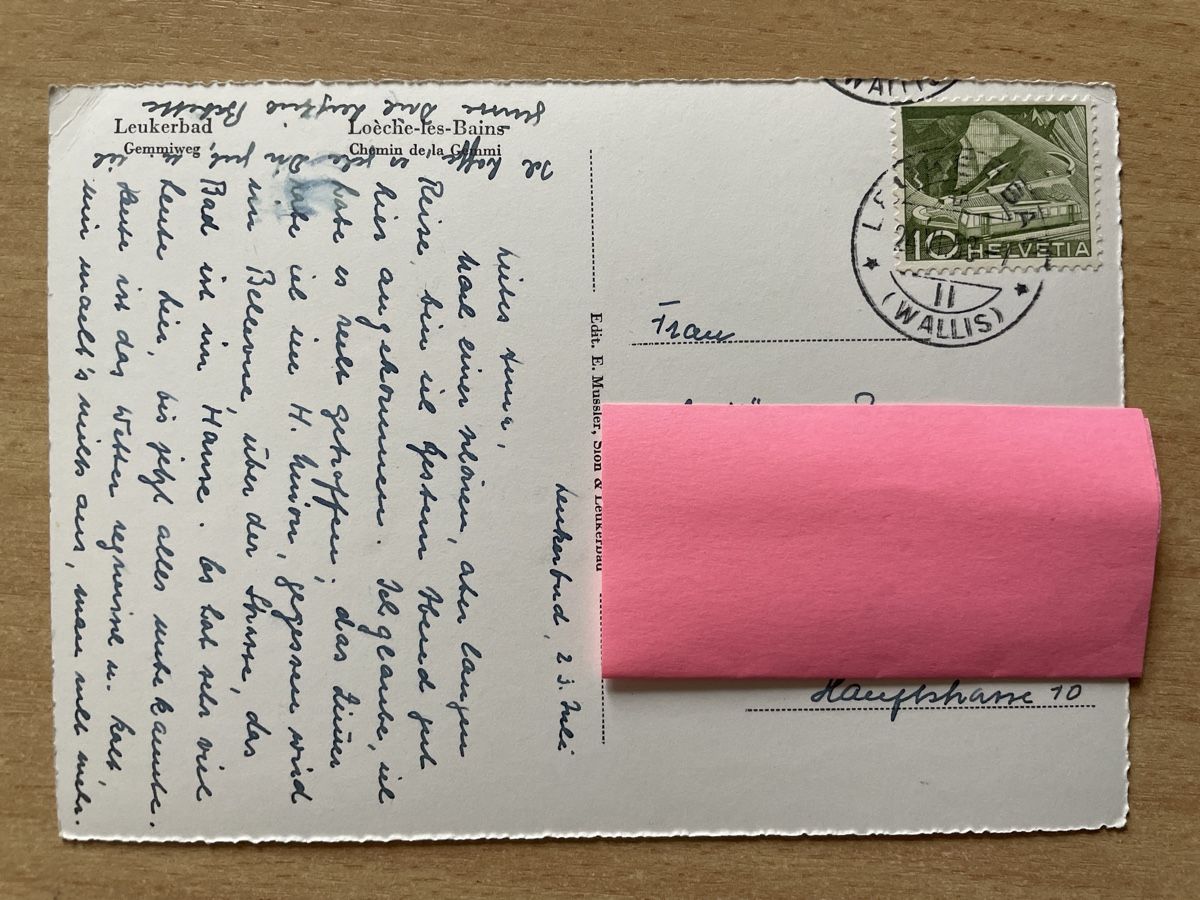 Leukerbad
Gemmiweg
Loèche-les-Bains
Chemin de la Gemmi
Leukerbad, 23. Juli
Liebes
Nach einer schönen, aber langen
Reise, bin ich gestern Abend gut
hier angekommen. Ich glaube, ich
habe es recht getroffen; das Zimmer
habe ich im H. Union, gegessen wird
im Bellevue, über der Strasse, das
Bad ist im Hause. Es hat sehr viel
Leute hier, bis jetzt alles unbekannte.
Heute ist das Wetter regnerisch u. kalt,
mir macht's nichts aus, man ruht mehr.
Ich hoffe, es gehe Dir gut, u.
grüsse Dich herzlich
Edit. E. Mussler, Sion & Leukerbad
Frau
Hauptstrasse 10
(WALLIS)
10 HELVETIA
II
(WALLIS)